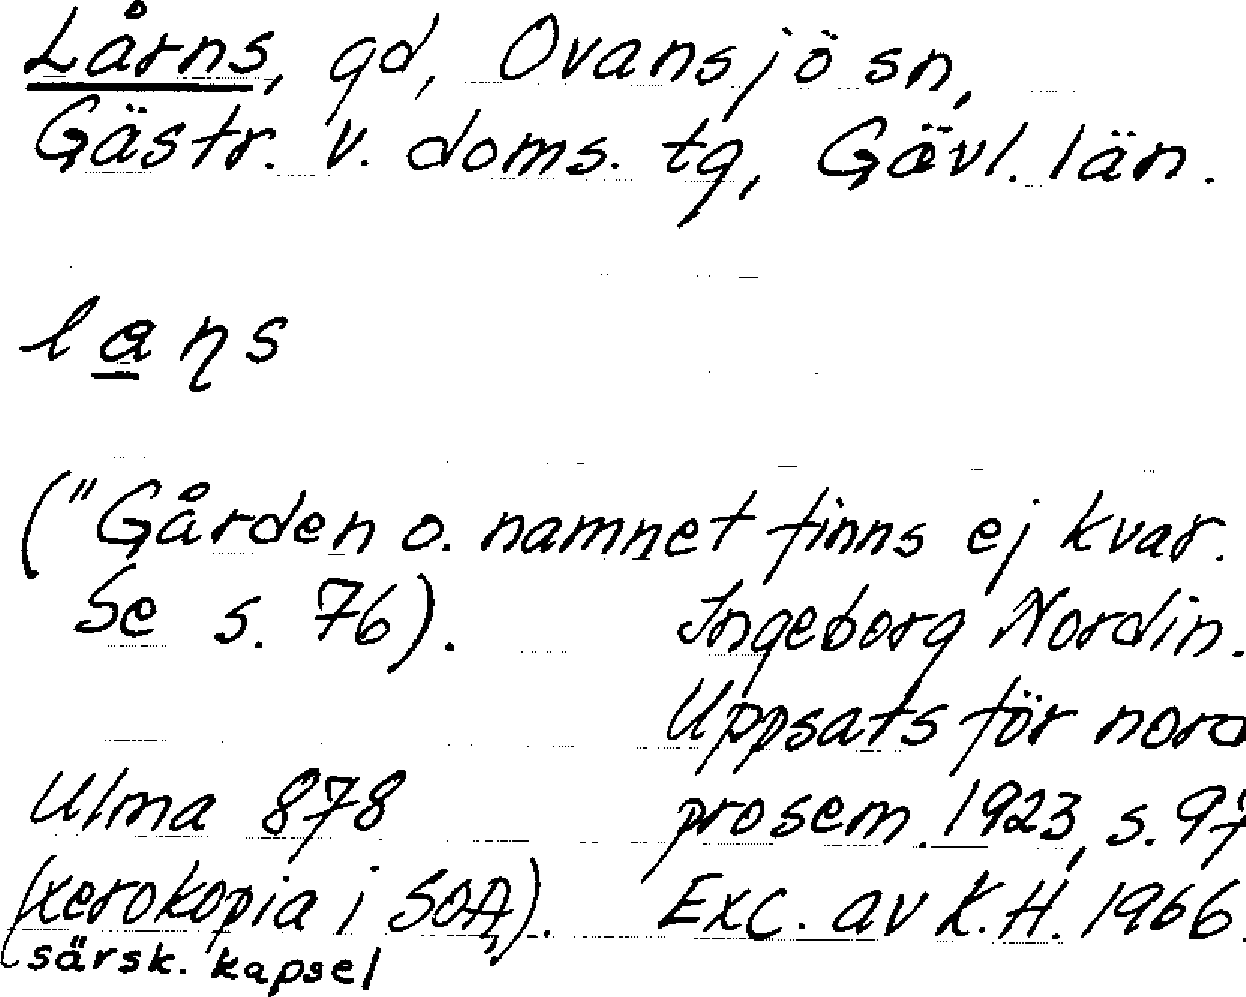 Lårns, gd, Ovansjö sn,
Gästr. v. doms. tg, Gävl. län.
laņs
("Gården o. namnet finns ej kvar.
Se s. 76).
Ingeborg Nordin.
Uppsats för nord
prosem. 1923, s. 97
Ulma 878
(xerokopia i SOA,).
särsk. kapsel
Exc. av K.H. 1966.